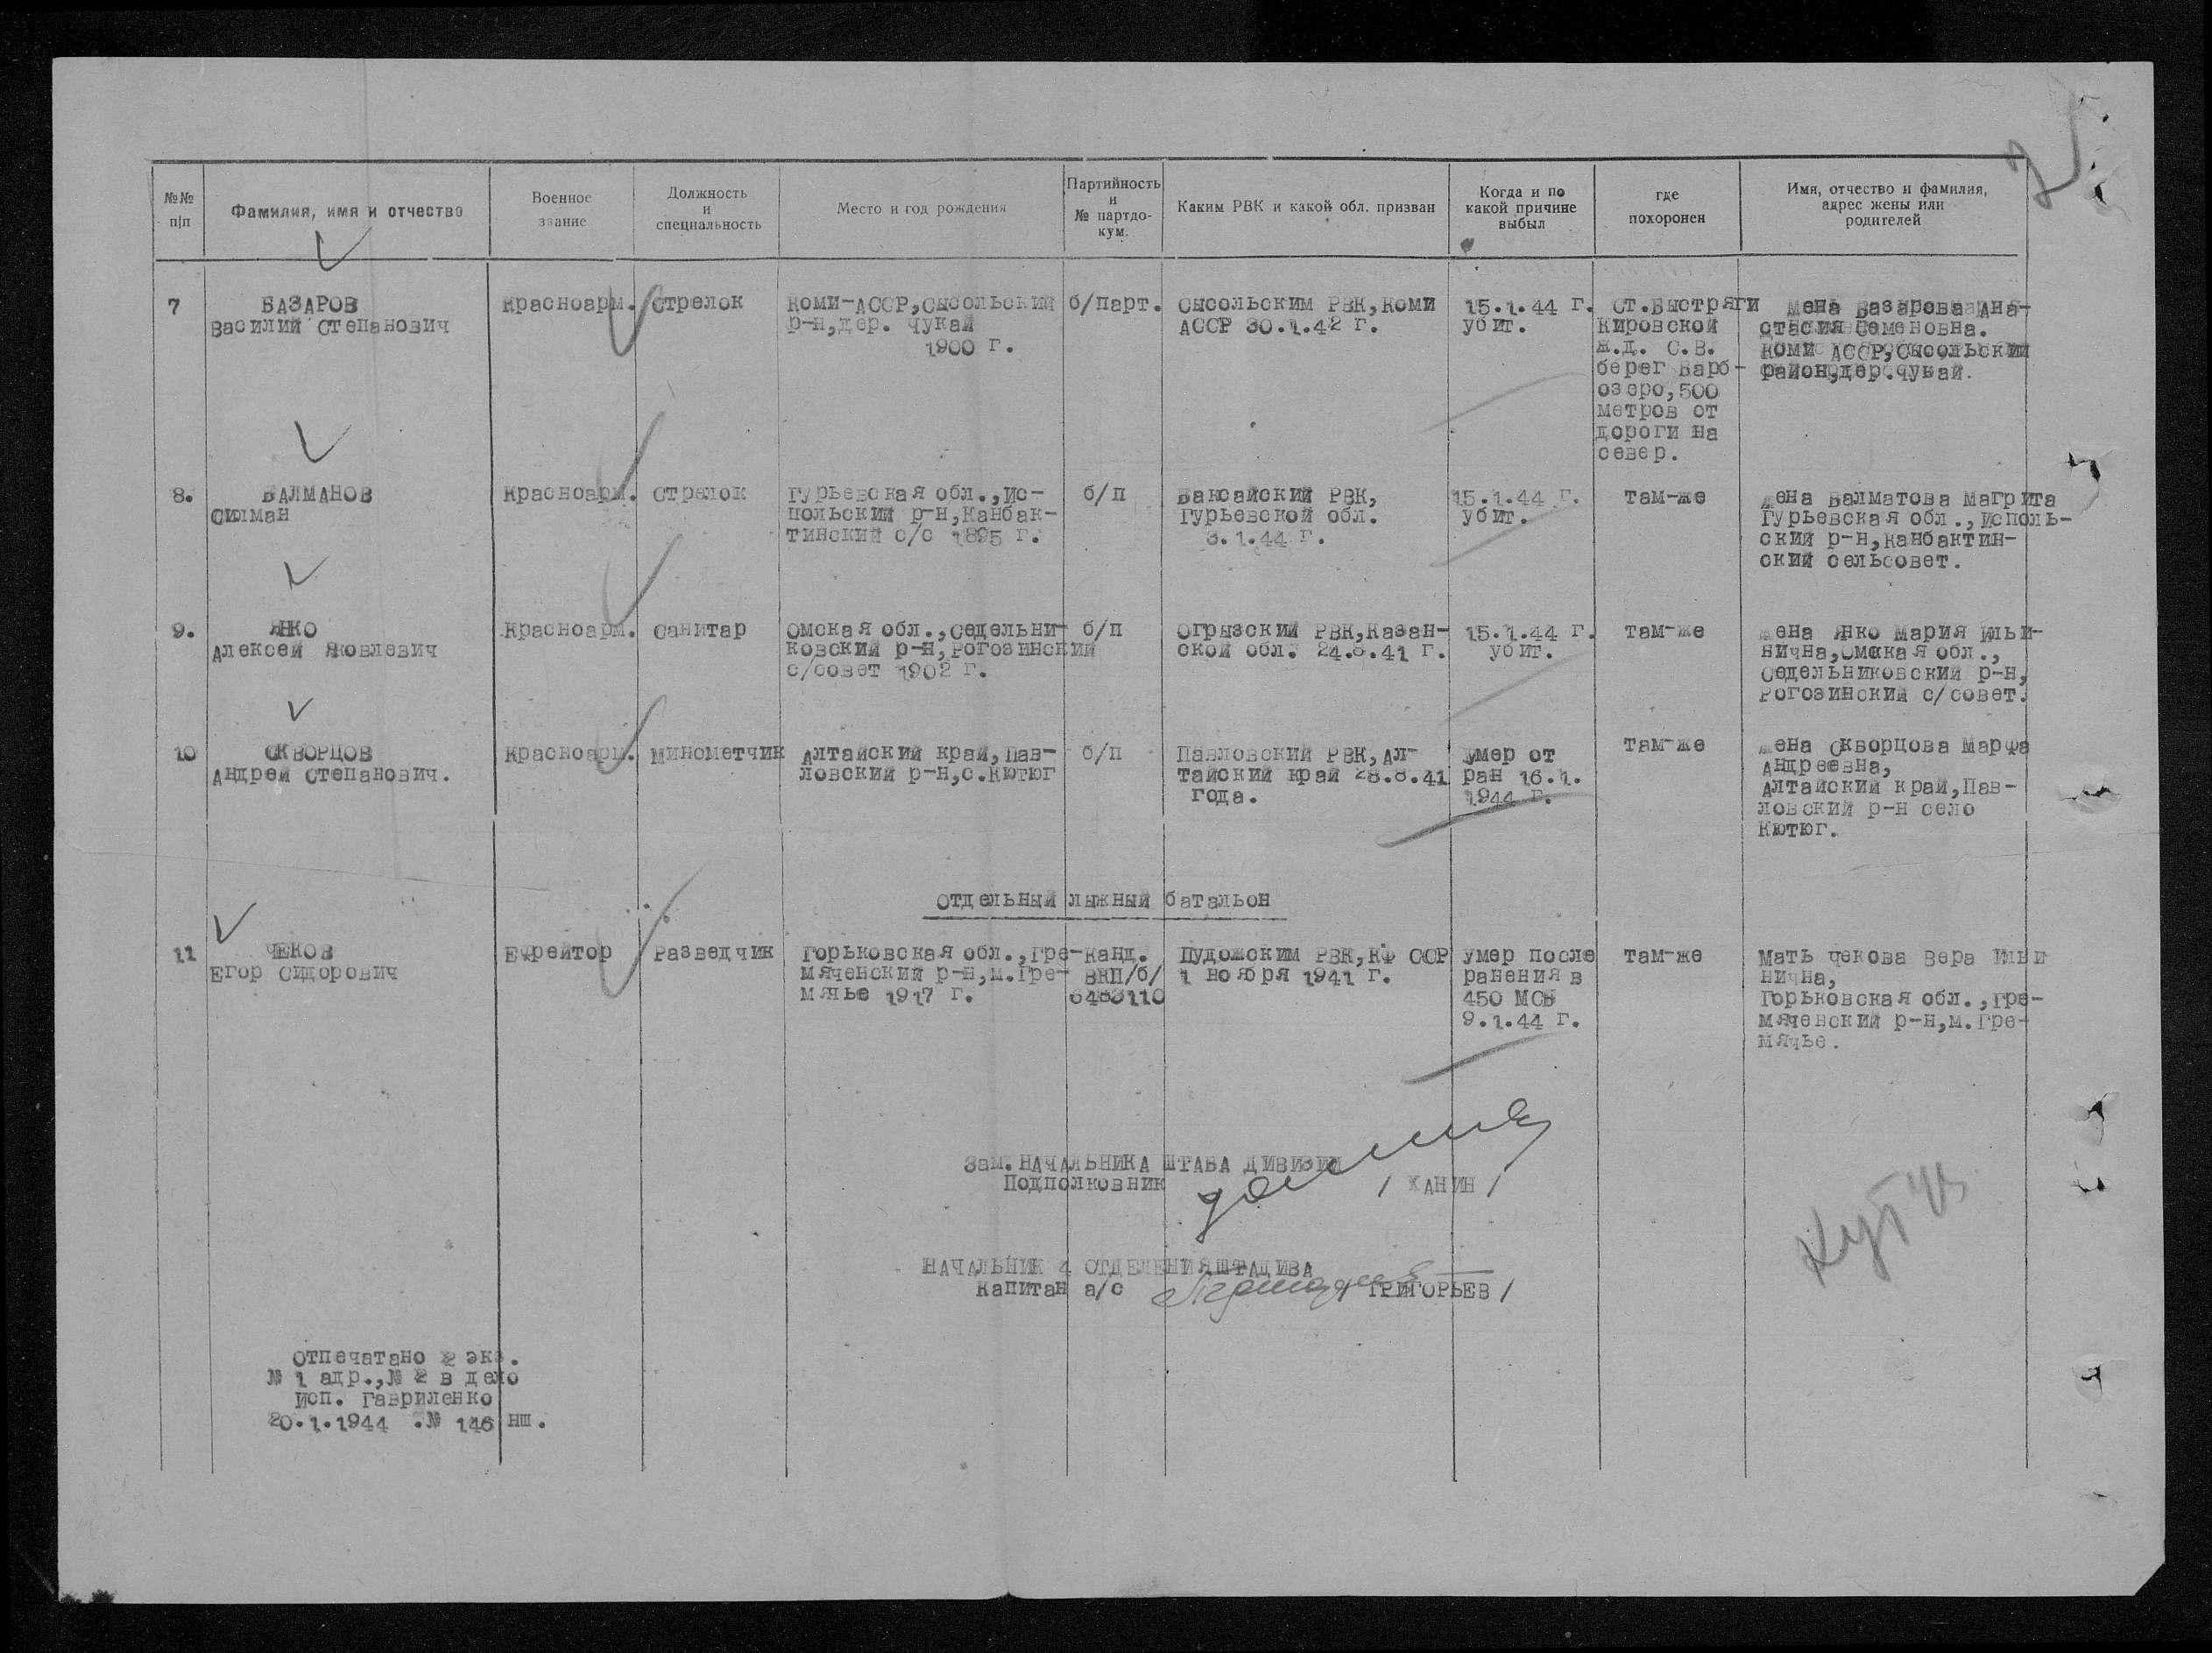 №№ п/п
Фамилия, имя и отчество
Военное звание
Должность и специальность
Место и год рождения
Партийность и № партдокум.
Каким РВК и какой обл. призван
Когда и по какой причине выбыл
где похоронен
Имя, отчество и фамилия, адрес жены или родителей
7
БАЗАРОВ
Василий Степанович
Красноарм.
Стрелок
Коми-АССР,Сысольский
р-н,дер. Чукай
1900 г.
б/парт.
Сысольским РВК,Коми
АССР 30.1.42 г.
15.1.44 г.
убит.
Ст.Быстряги
Кировской
ж.д. С.В.
берег Варб-
озеро,500
метров от
дороги на
север.
Жена Базарова Ана-
стасия Семеновна.
Коми АССР,Сысольский
район,дер.Чукай.
8.
БАЛМАНОВ
Силман
Красноарм.
Стрелок
Гурьевская обл.,Ис-
польский р-н,Канбак-
тинский с/с 1895 г.
б/п
Баксайский РВК,
Гурьевской обл.
3.1.44 г.
15.1.44 г.
убит.
там-же
Жена Балматова Магрита
Гурьевская обл.,Исполь-
ский р-н,Канбактин-
ский сельсовет.
9.
ЯНКО
Алексей Яковлевич
Красноарм.
Санитар
Омская обл.,Седельни-
ковский р-н,Рогозинский
с/совет 1902 г.
б/п
Огрызский РВК,Казан-
ской обл. 24.8.41 г.
15.1.44 г.
убит.
там-же
Жена Янко Мария Ильи-
нична,Омская обл.,
Седельниковский р-н,
Рогозинский с/совет.
10
СКВОРЦОВ
Андрей Степанович.
Красноарм.
Минометчик
Алтайский край,Пав-
ловский р-н,с.Кютюг
б/п
Павловский РВК,Ал-
тайский край 28.8.41
года.
Умер от
ран 16.1.
1944 г.
там-же
Жена Скворцова Марфа
Андреевна,
Алтайский край,Пав-
ловский р-н село
Кютюг.
Отдельный лыжный батальон
11
ЧЕКОВ
Егор Сидорович
Ефрейтор
Разведчик
Горьковская обл.,Гре-
мяченский р-н,м.Гре-
мячье 1917 г.
Канд.
ВКП/б/
6483110
Пудожским РВК,КФ ССР
1 ноября 1941 г.
Умер после
ранения в
450 МСБ
9.1.44 г.
там-же
Мать Чекова Вера Ильи
нична,
Горьковская обл.,Гре-
мяченский р-н,м.Гре-
мячье.
Зам.НАЧАЛЬНИКА ШТАБА ДИВИЗИИ
Подполковник / ЖАНИН /
НАЧАЛЬНИК 4 ОТДЕЛЕНИЯ ШТАДИВА
Капитан а/с / ГРИГОРЬЕВ /
Отпечатано 2 экз.
№ 1 адр.,№ 2 в дело
Исп. Гавриленко
20.1.1944 .№ 146 нш.